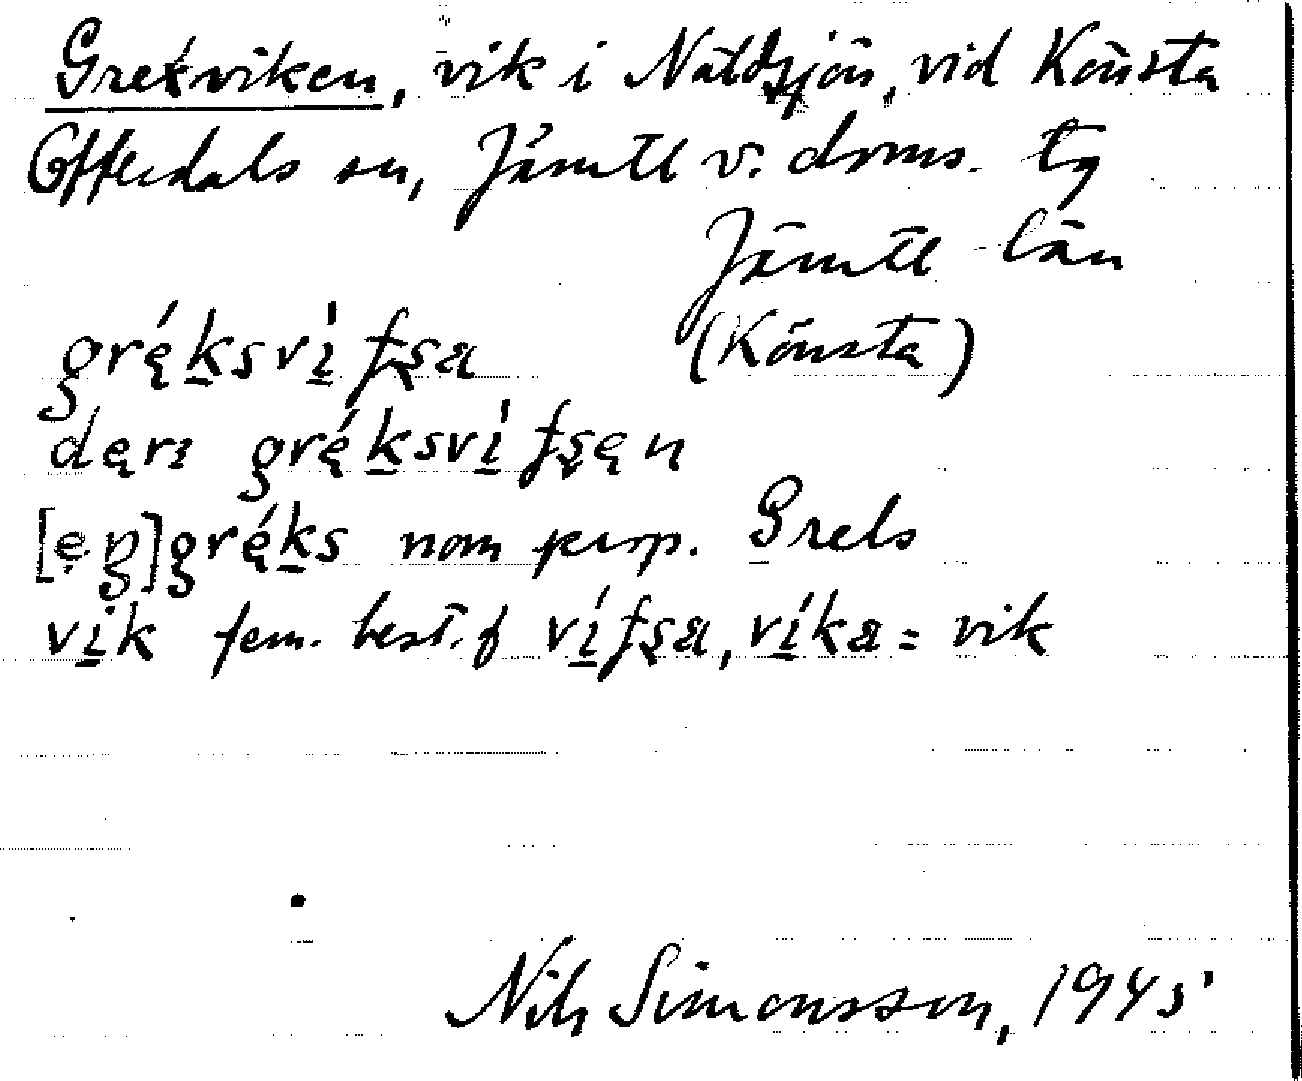 Grekviken, vik i Näldsjön, vid Könsta
Offerdals sn, Jämtl v. doms. tg
Jämtl län
gré̜ḵsvı̱́ʄs̨a (Könsta)
dęrı gré̜ḵsvı̱́ʄs̨ęn
[ẹŋ]gré̜ḵs nom prop. Grels
vi̱k fem. best. f ví̱ʄs̨a, ví̱ka = vik
Nils Simonsson, 1945